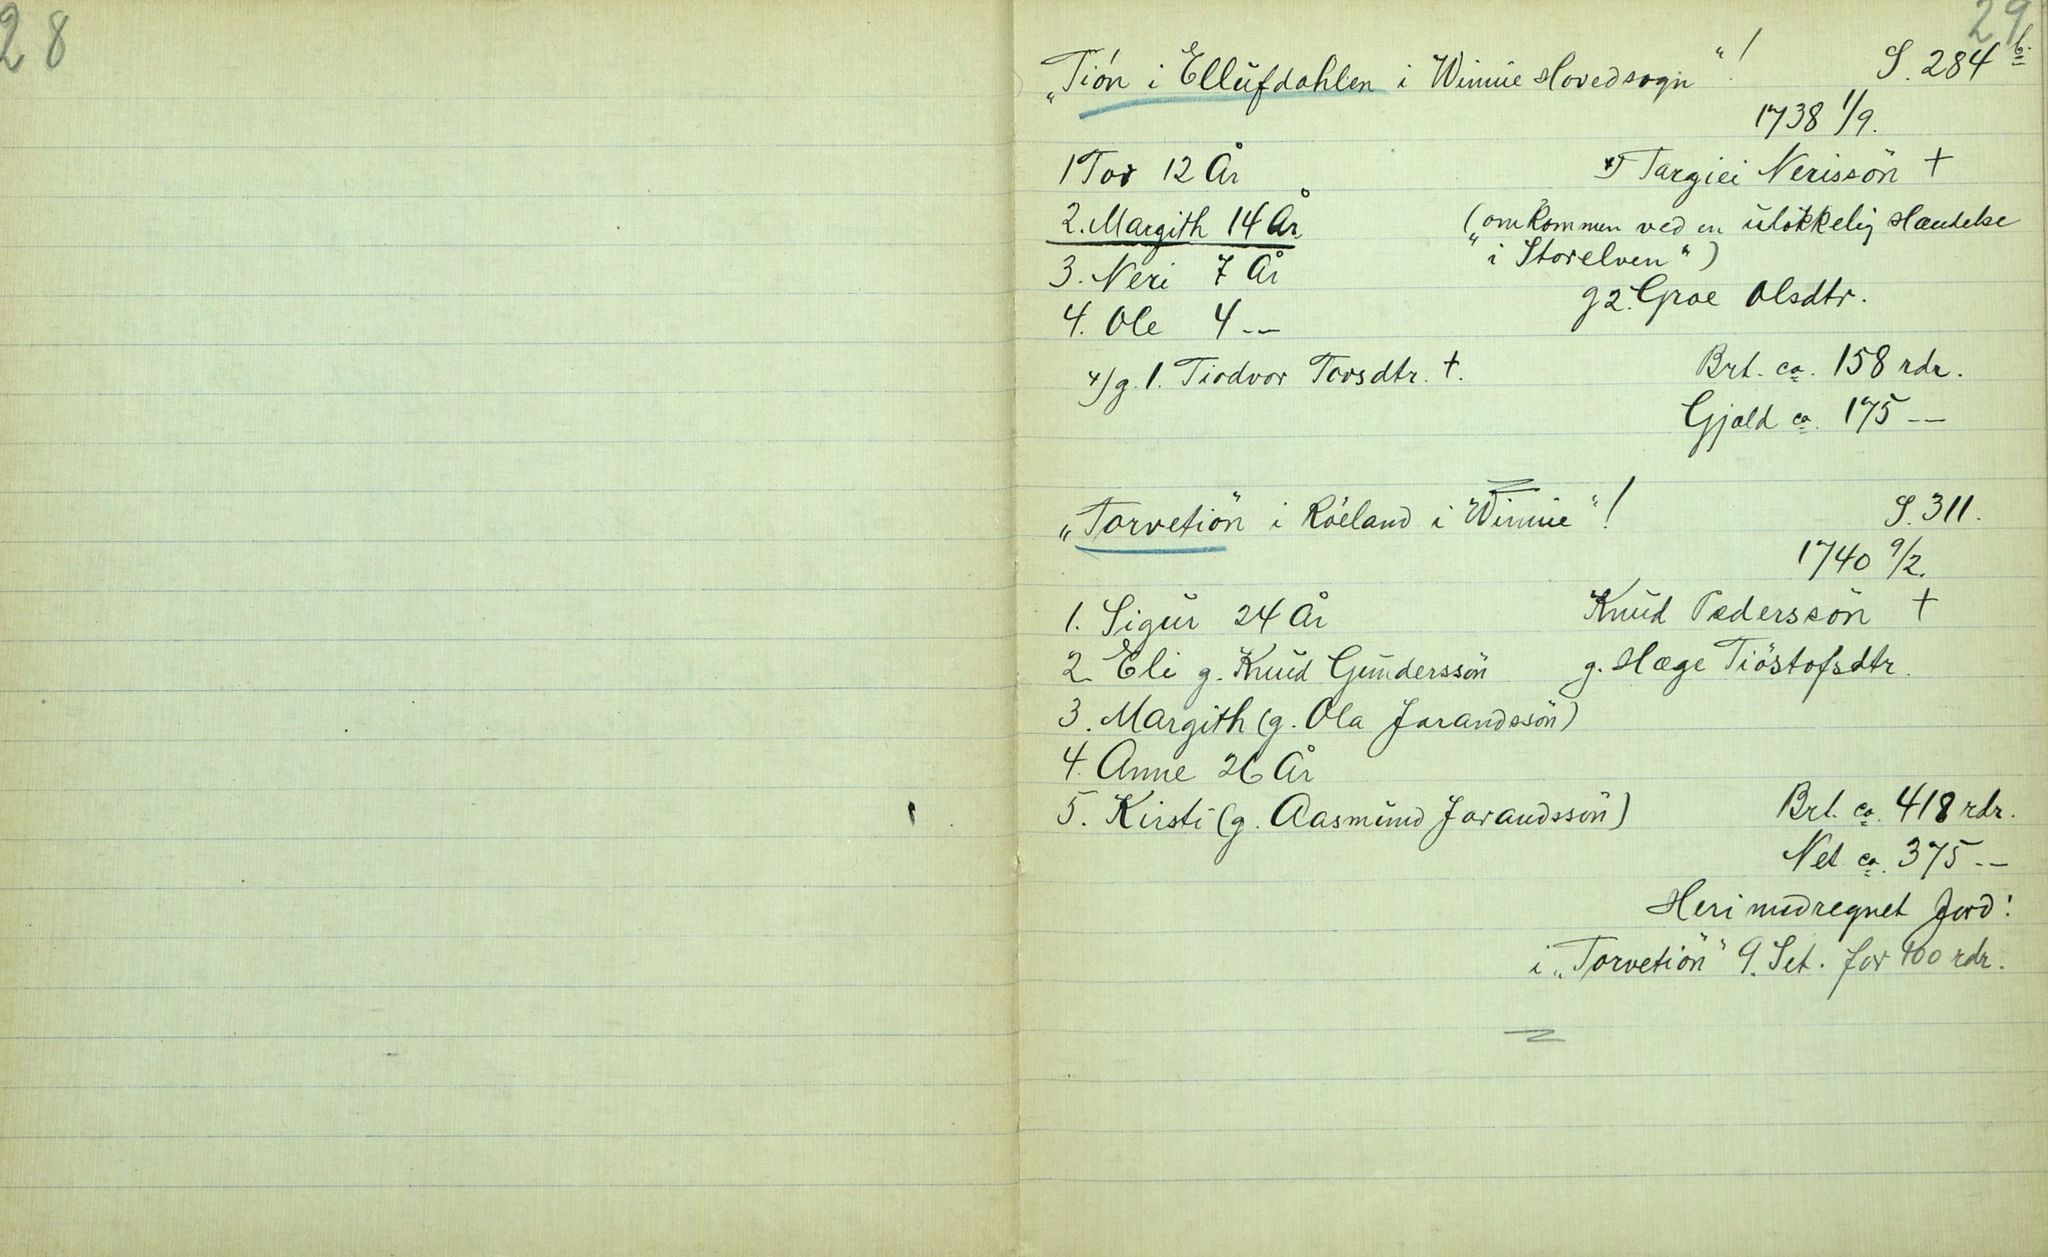 28
29
„Tiön i Ellufdahlen i Winnie Hovedsogn“! S. 284 b.
1738 1/9.
1 Tov 12 År
x) Targiei Nerissön †
2. Margith 14 År
(„omkommen ved en ulökkelig Hændelse
3. Neri 7 År
i Storelven“)
4. Ole 4 --
g 2. Groe Olsdtr.
x) g. 1. Tiodvor Tovsdtr. †.
Brt. ca. 158 rdr.
Gjæld ca. 175 --
„Torvetiön i Röeland i Winnie“! S. 311.
1740 9/2.
1. Sigur 24 År
Knud Pederssön †
2. Eli g. Knud Gunderssön
g. Hæge Tiöstofsdtr.
3. Margith (g. Ola Jorandssön)
4. Anne 26 År
5. Kirsti (g. Aasmund Jorandssön)
Brt. ca. 418 rdr.
Net ca. 375 --
Heri medregnet Jord:
i „Torvetiön“ 9. Set. for 400 rdr.